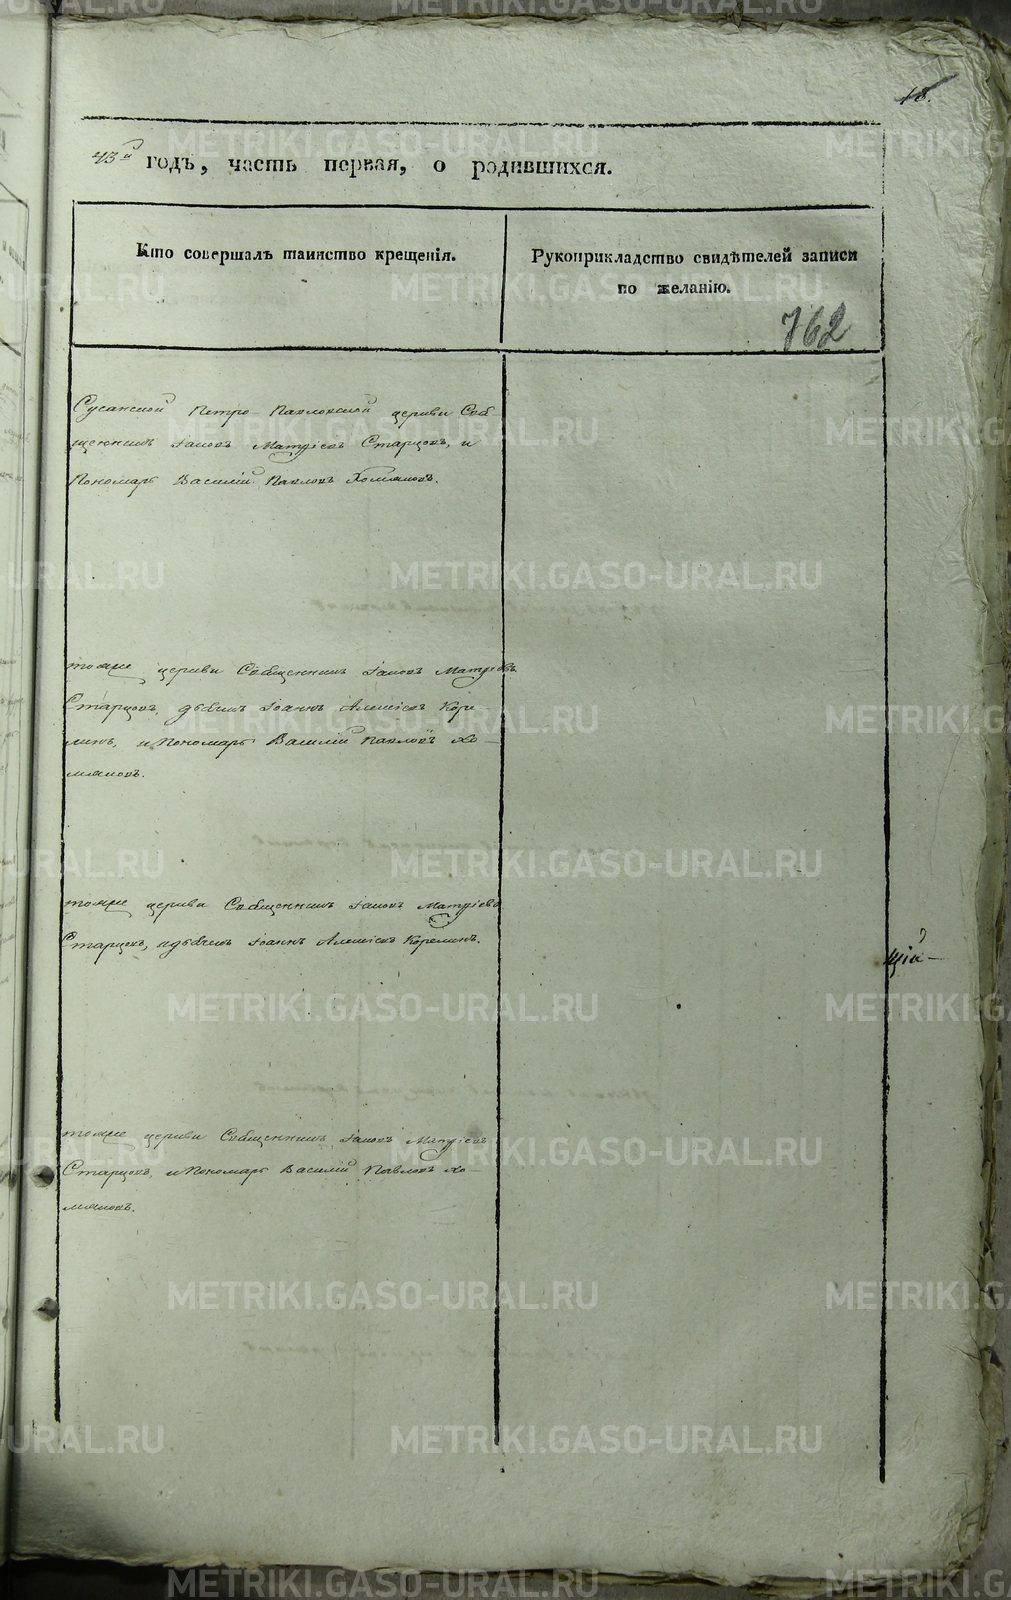 18.
43й годъ, часть первая, о родившихся.
Кто совершалъ таинство крещенія.
Рукоприкладство свидѣтелей записи
по желанію.
762
Сусанской Петро-Павловской церкви Свя-
щенникъ Іаковъ Матѳіевъ Старцовъ, и
Пономарь Василій Павловъ Хомяковъ.
тойже церкви Священникъ Іаковъ Матѳіевъ
Старцовъ, дьячекъ Іоаннъ Алексіевъ Коре-
линъ, и Пономарь Василій Павловъ Хо-
мяковъ.
тойже церкви Священникъ Іаковъ Матѳіевъ
Старцовъ, и дьячекъ Іоаннъ Алексіевъ Корелинъ.
щій
тойже церкви Священникъ Іаковъ Матѳіевъ
Старцовъ, и Пономарь Василій Павловъ Хо-
мяковъ.
METRIKI.GASO-URAL.RU